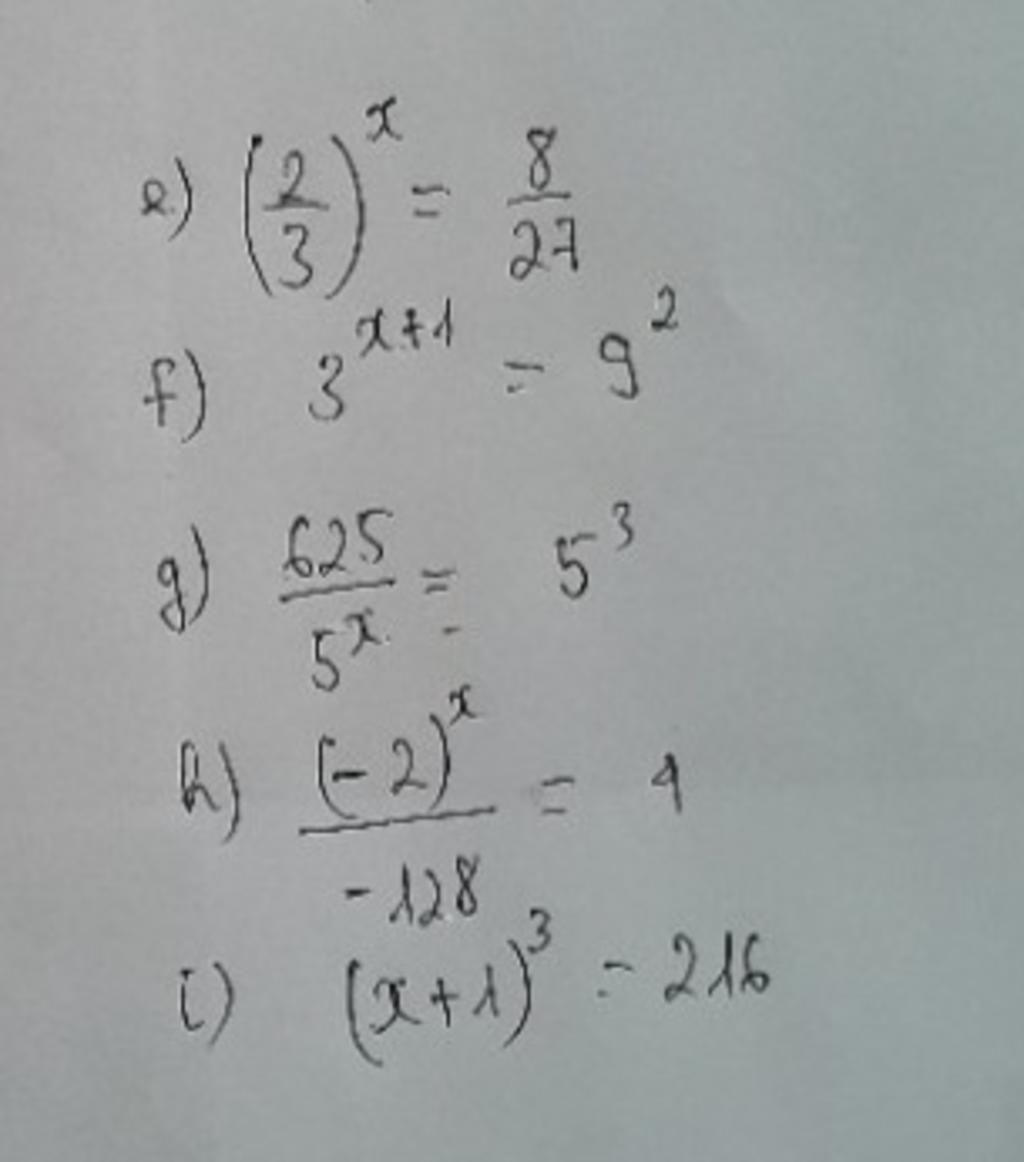 e) (2/3)^x = 8/27
f) 3^(x+1) = 9^2
g) 625/5^x = 5^3
h) (-2)^x/-128 = 4
i) (x+1)^3 = 216